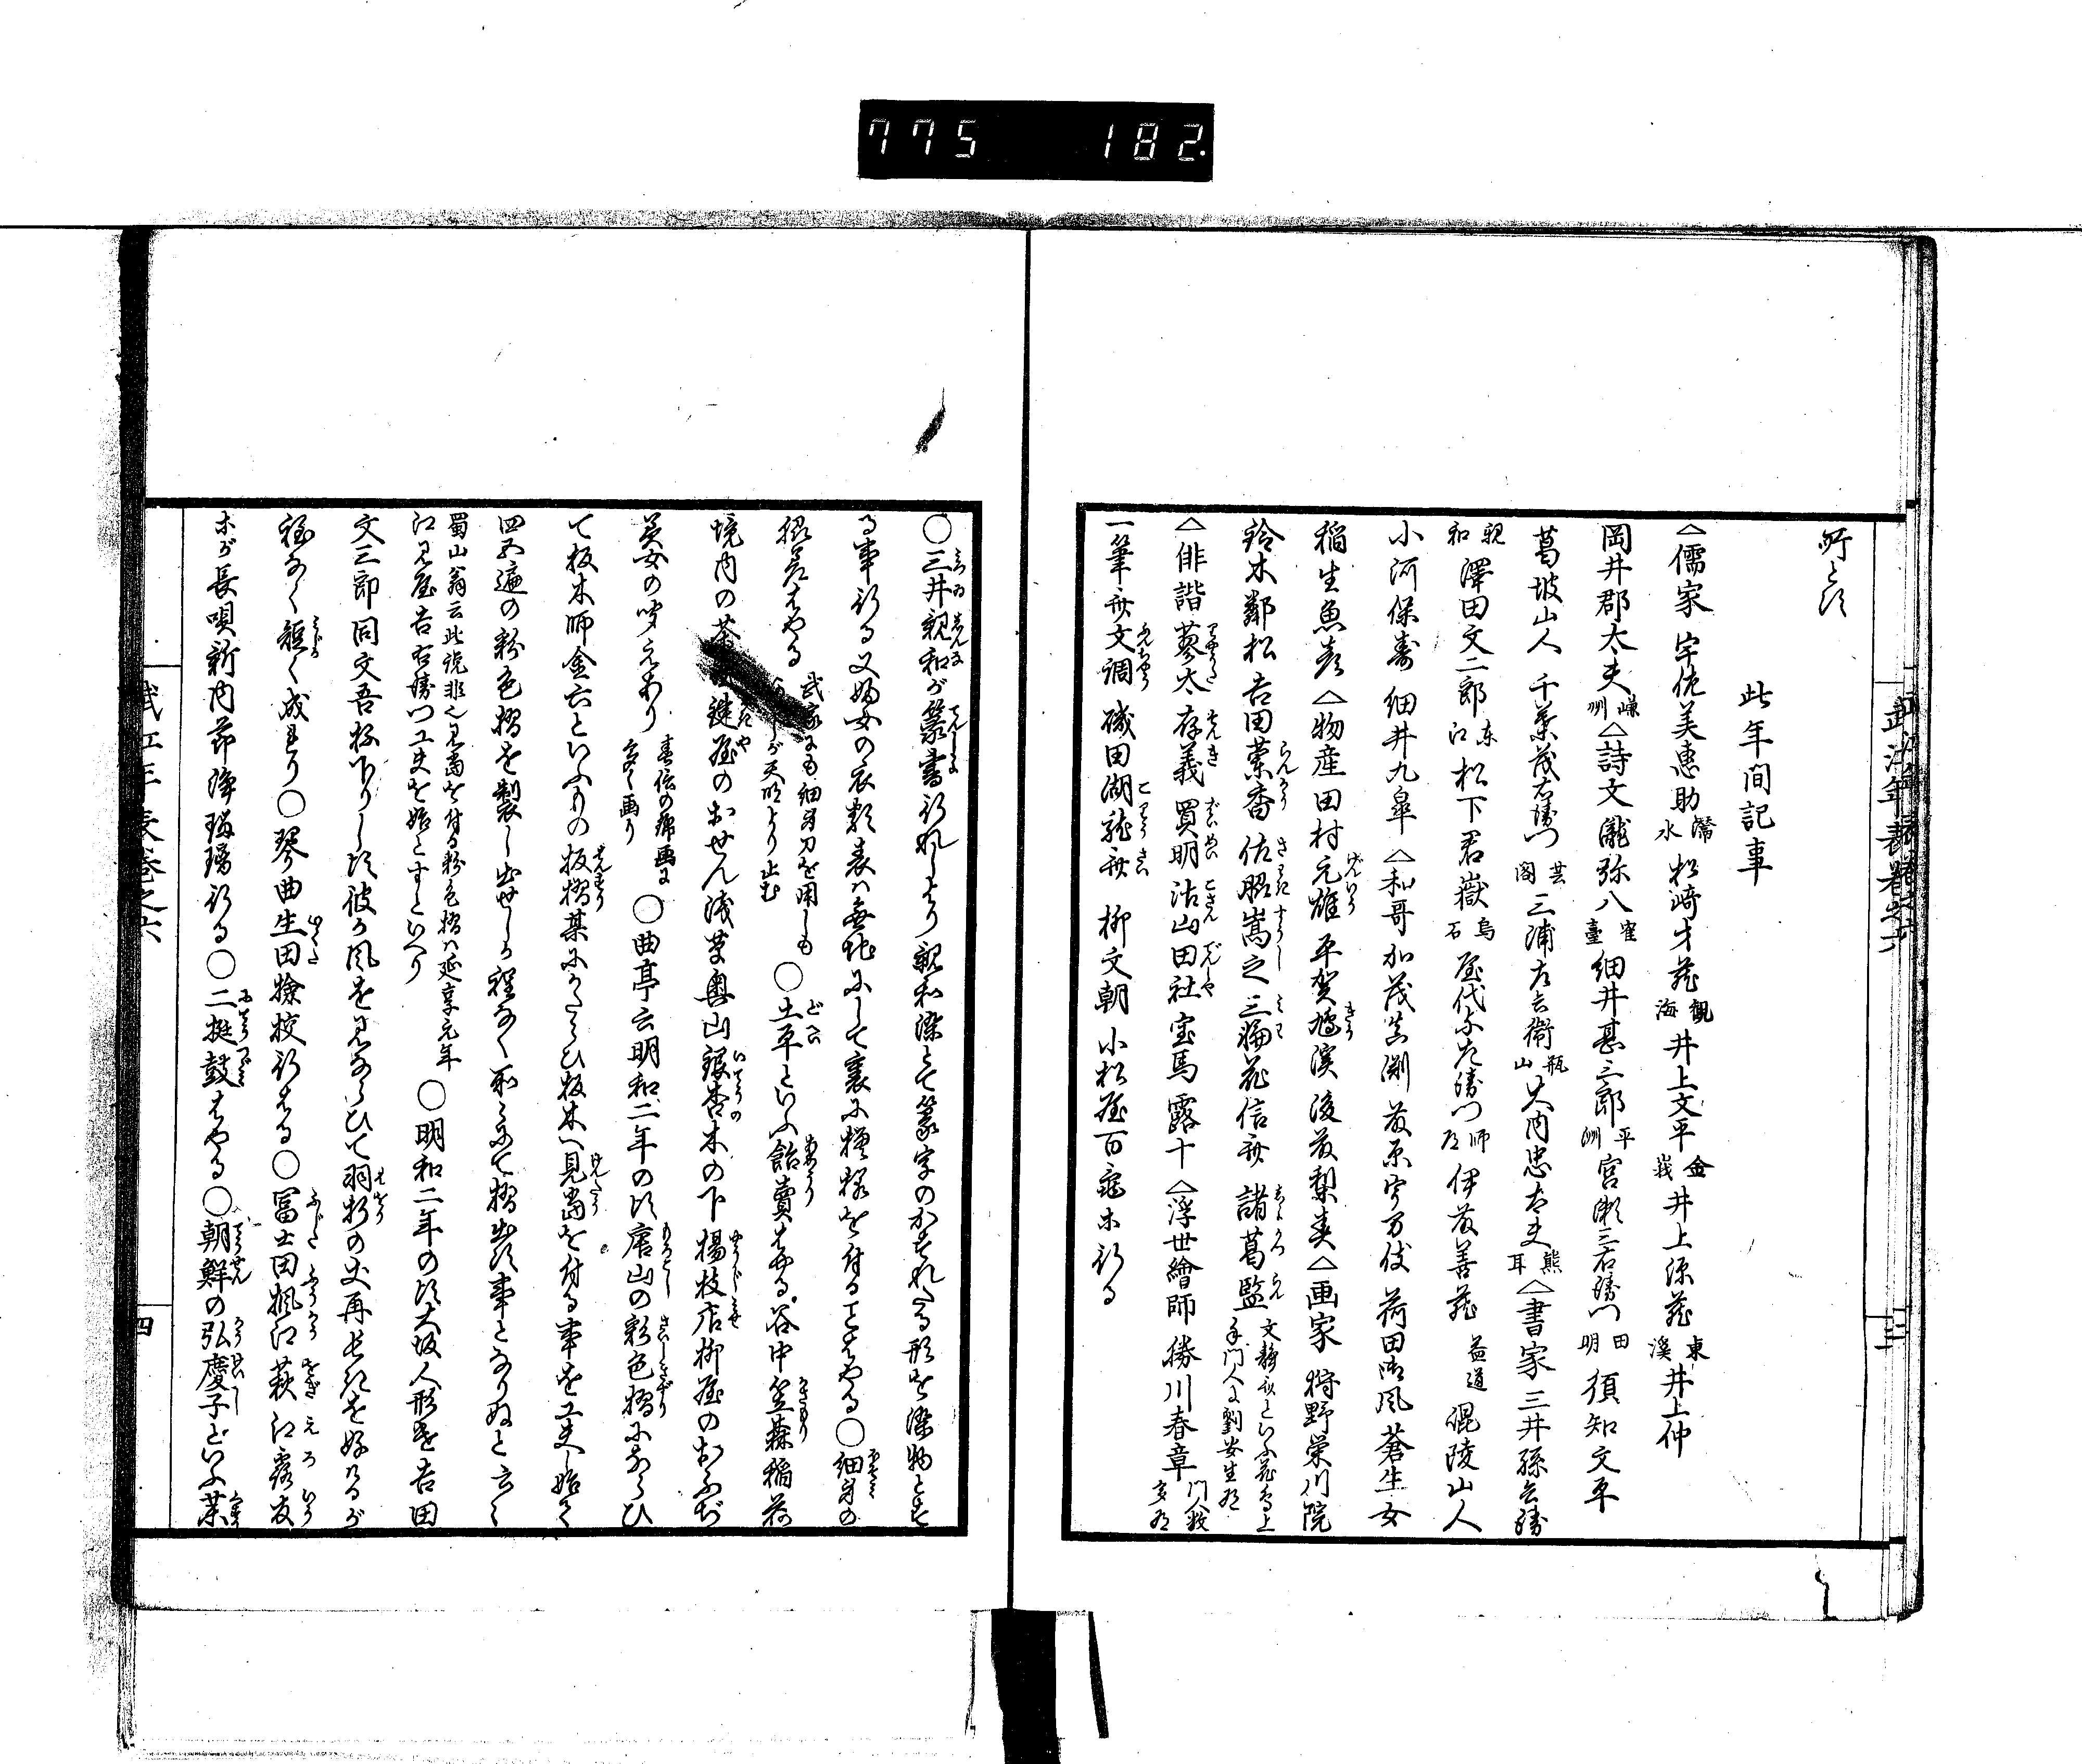 775 182.
武江年表巻之六
三
町となる
此年間記事
△儒家 宇佐美惠助 灊水 松崎才蔵 觀海 井上文平 金峩 井上源蔵 東溪 井上仲
岡井郡太夫 嵰洲 △詩文 瀧弥八 寉臺 細井甚三郎 平洲 宮瀬三右衛門 田明 須知文平
葛坡山人 千葉茂右衛門 芸閣 三浦左兵衛 瓶山 大内忠太夫 熊耳 △書家 三井孫兵衛
親和 澤田文二郎 东江 松下君嶽 烏石 屋代 師道 伊藤善蔵 益道 混陵山人
小河保壽 細井九皐 △和哥 加茂真渕 藤原宇万伎 荷田御風 蒼生女
稲生魚彦 △物産 田村元雄 平賀鳩溪 後藤梨春 △画家 狩野栄川院
鈴木鄰松 吉田蘭香 佐脇嵩之 三輪花信斎 諸葛監
△俳諧 蓼太 存義 買明 沽山 田社 宝馬 露十 △浮世繪師 勝川春章 門人数多有
一筆斎文調 礒田湖龍斎 柳文朝 小松屋百亀木行る
○三井親和が篆書行れしより親和染とて篆字のかすれたる形を染物とす
る事行る又婦女の衣類表ハ無地にして裏に模様を付ることはやる○細身の
脇差はやる 武家にも細身刀を用しも が天明より止む ○土平といふ飴賣はやる谷中笠森稲荷
境内の茶 鍵屋のおせん浅草奥山銀杏木の下楊枝店柳屋のおふぢ
美女の聞えあり 春信の錦画に多く画り ○曲亭云明和二年の頃唐山の彩色摺にならひ
て板木師金六といふもの板摺某にかたらひ板木へ見當を付る事を工夫し始て
四五遍の彩色摺を製し出せしが程なく所々にて摺出す事となりぬと云々
蜀山翁云此説非也見當を付る彩色摺ハ延享元年
江見屋吉右衛門工夫を始とすといへり ○明和二年の頃大坂人形遣吉田
文三郎同文吾杯下りし頃彼が風を見ならひて羽折の丈再長きを好けるが
程なく短く成たり○琴曲生田撿挍行はる○冨士田楓江荻江露友
木が長唄新内節淨瑠璃行る○二挺鼓はやる○朝鮮の弘慶子といふ菓
武江年表巻之六
四